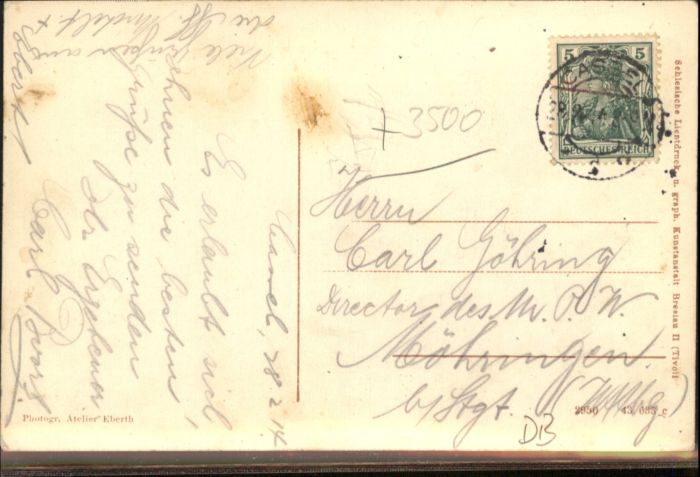 Cassel, 28.2.14
Es erlaubt sich,
Ihnen die besten
Grüße zu senden
Ihr Ergebener
Carl
Viele
Eberth
+ 3500
5 5
CASSEL
DEUTSCHES REICH
Herrn
Carl Göhring
Director des M. P. W.
Möhringen.
b/Stgt.
DB
Photogr. Atelier Eberth
2950 43 635 c
Schlesische Lichtdruck- u. graph. Kunstanstalt Breslau II (Tivoli